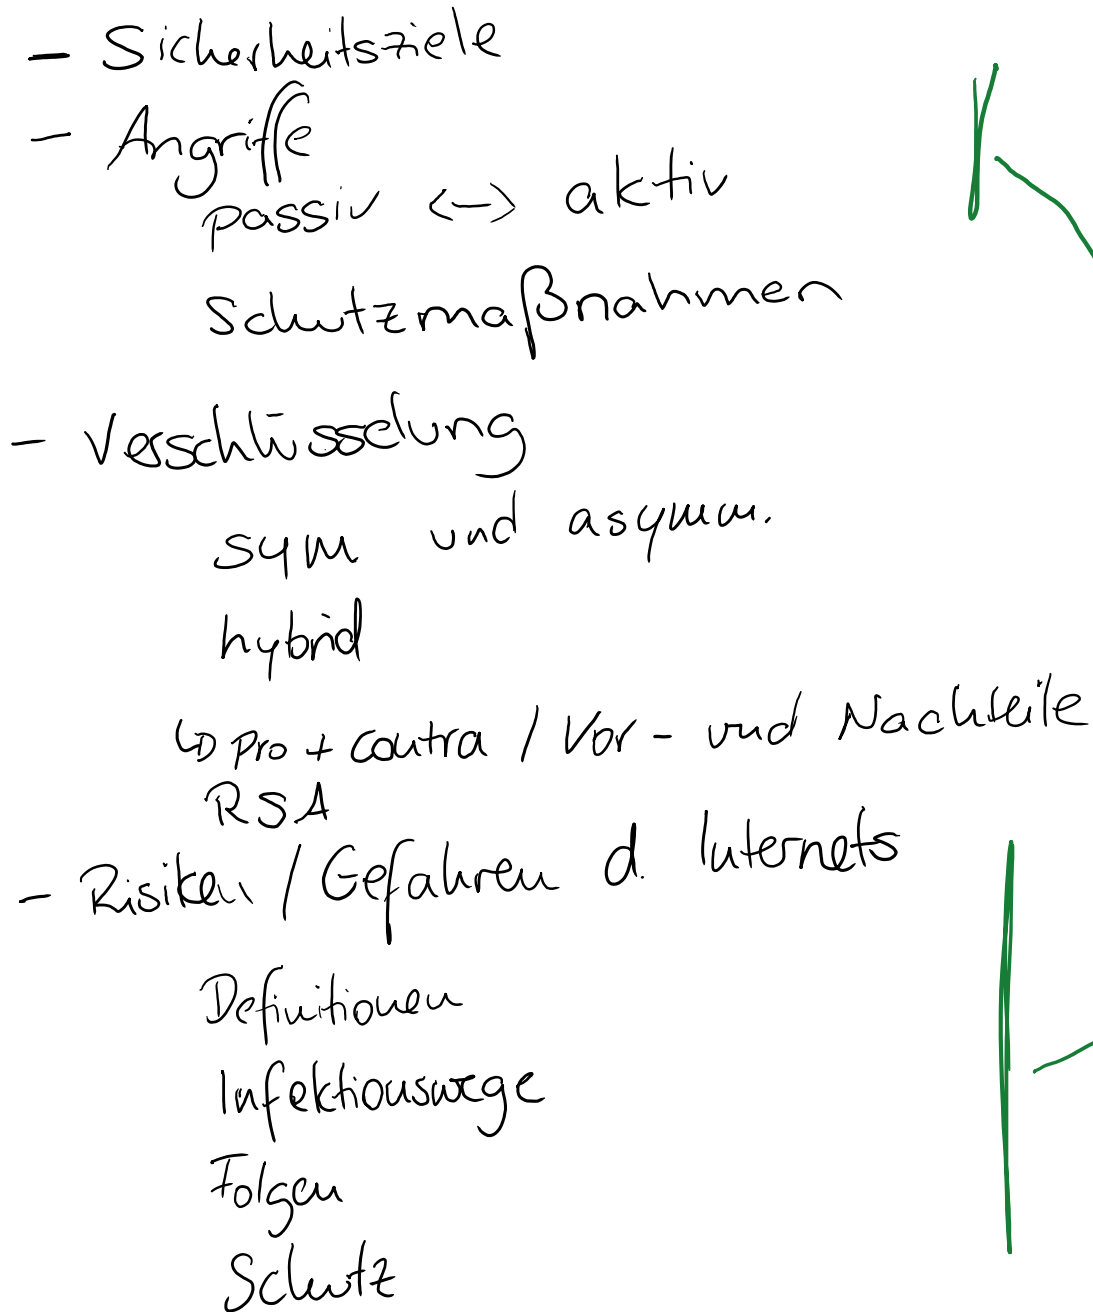 - Sicherheitsziele
- Angriffe
passiv <-> aktiv
Schutzmaßnahmen
- Verschlüsselung
sym und asymm.
hybrid
↳ pro + contra / Vor- und Nachteile
RSA
- Risiken / Gefahren d. Internets
Definitionen
Infektionswege
Folgen
Schutz